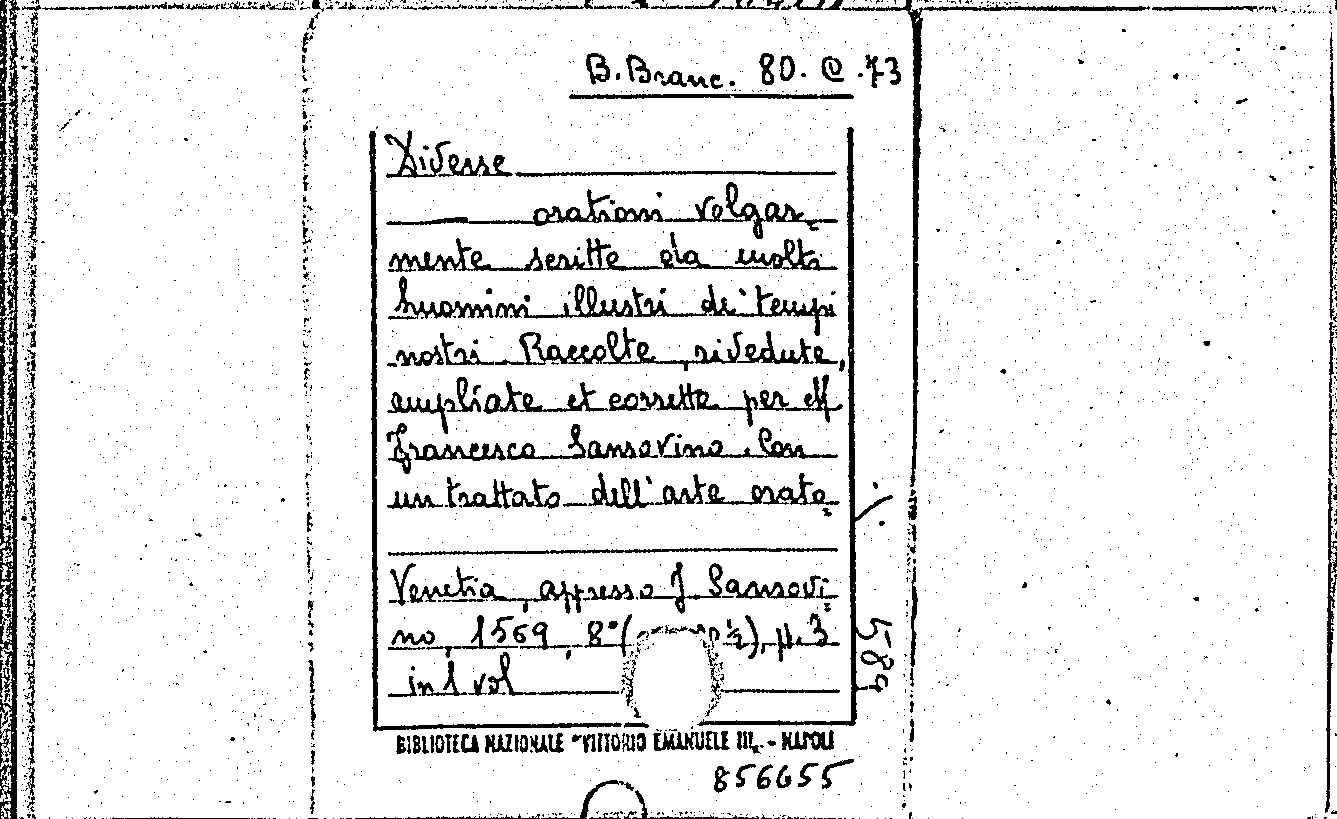 B. Branc. 80. @ .73
Diverse
orationi volgar=
mente scritte da molti
huomini illustri de' tempi
nostri Raccolte, rivedute,
ampliate et corrette per M.
Francesco Sansovino. Con
un trattato dell'arte orato=
Venetia, appresso J Sansovi=
no, 1569, 8° ½), p. 3
in 1 vol
589
BIBLIOTECA NAZIONALE "VITTORIO EMANUELE III„ - NAPOLI
856655